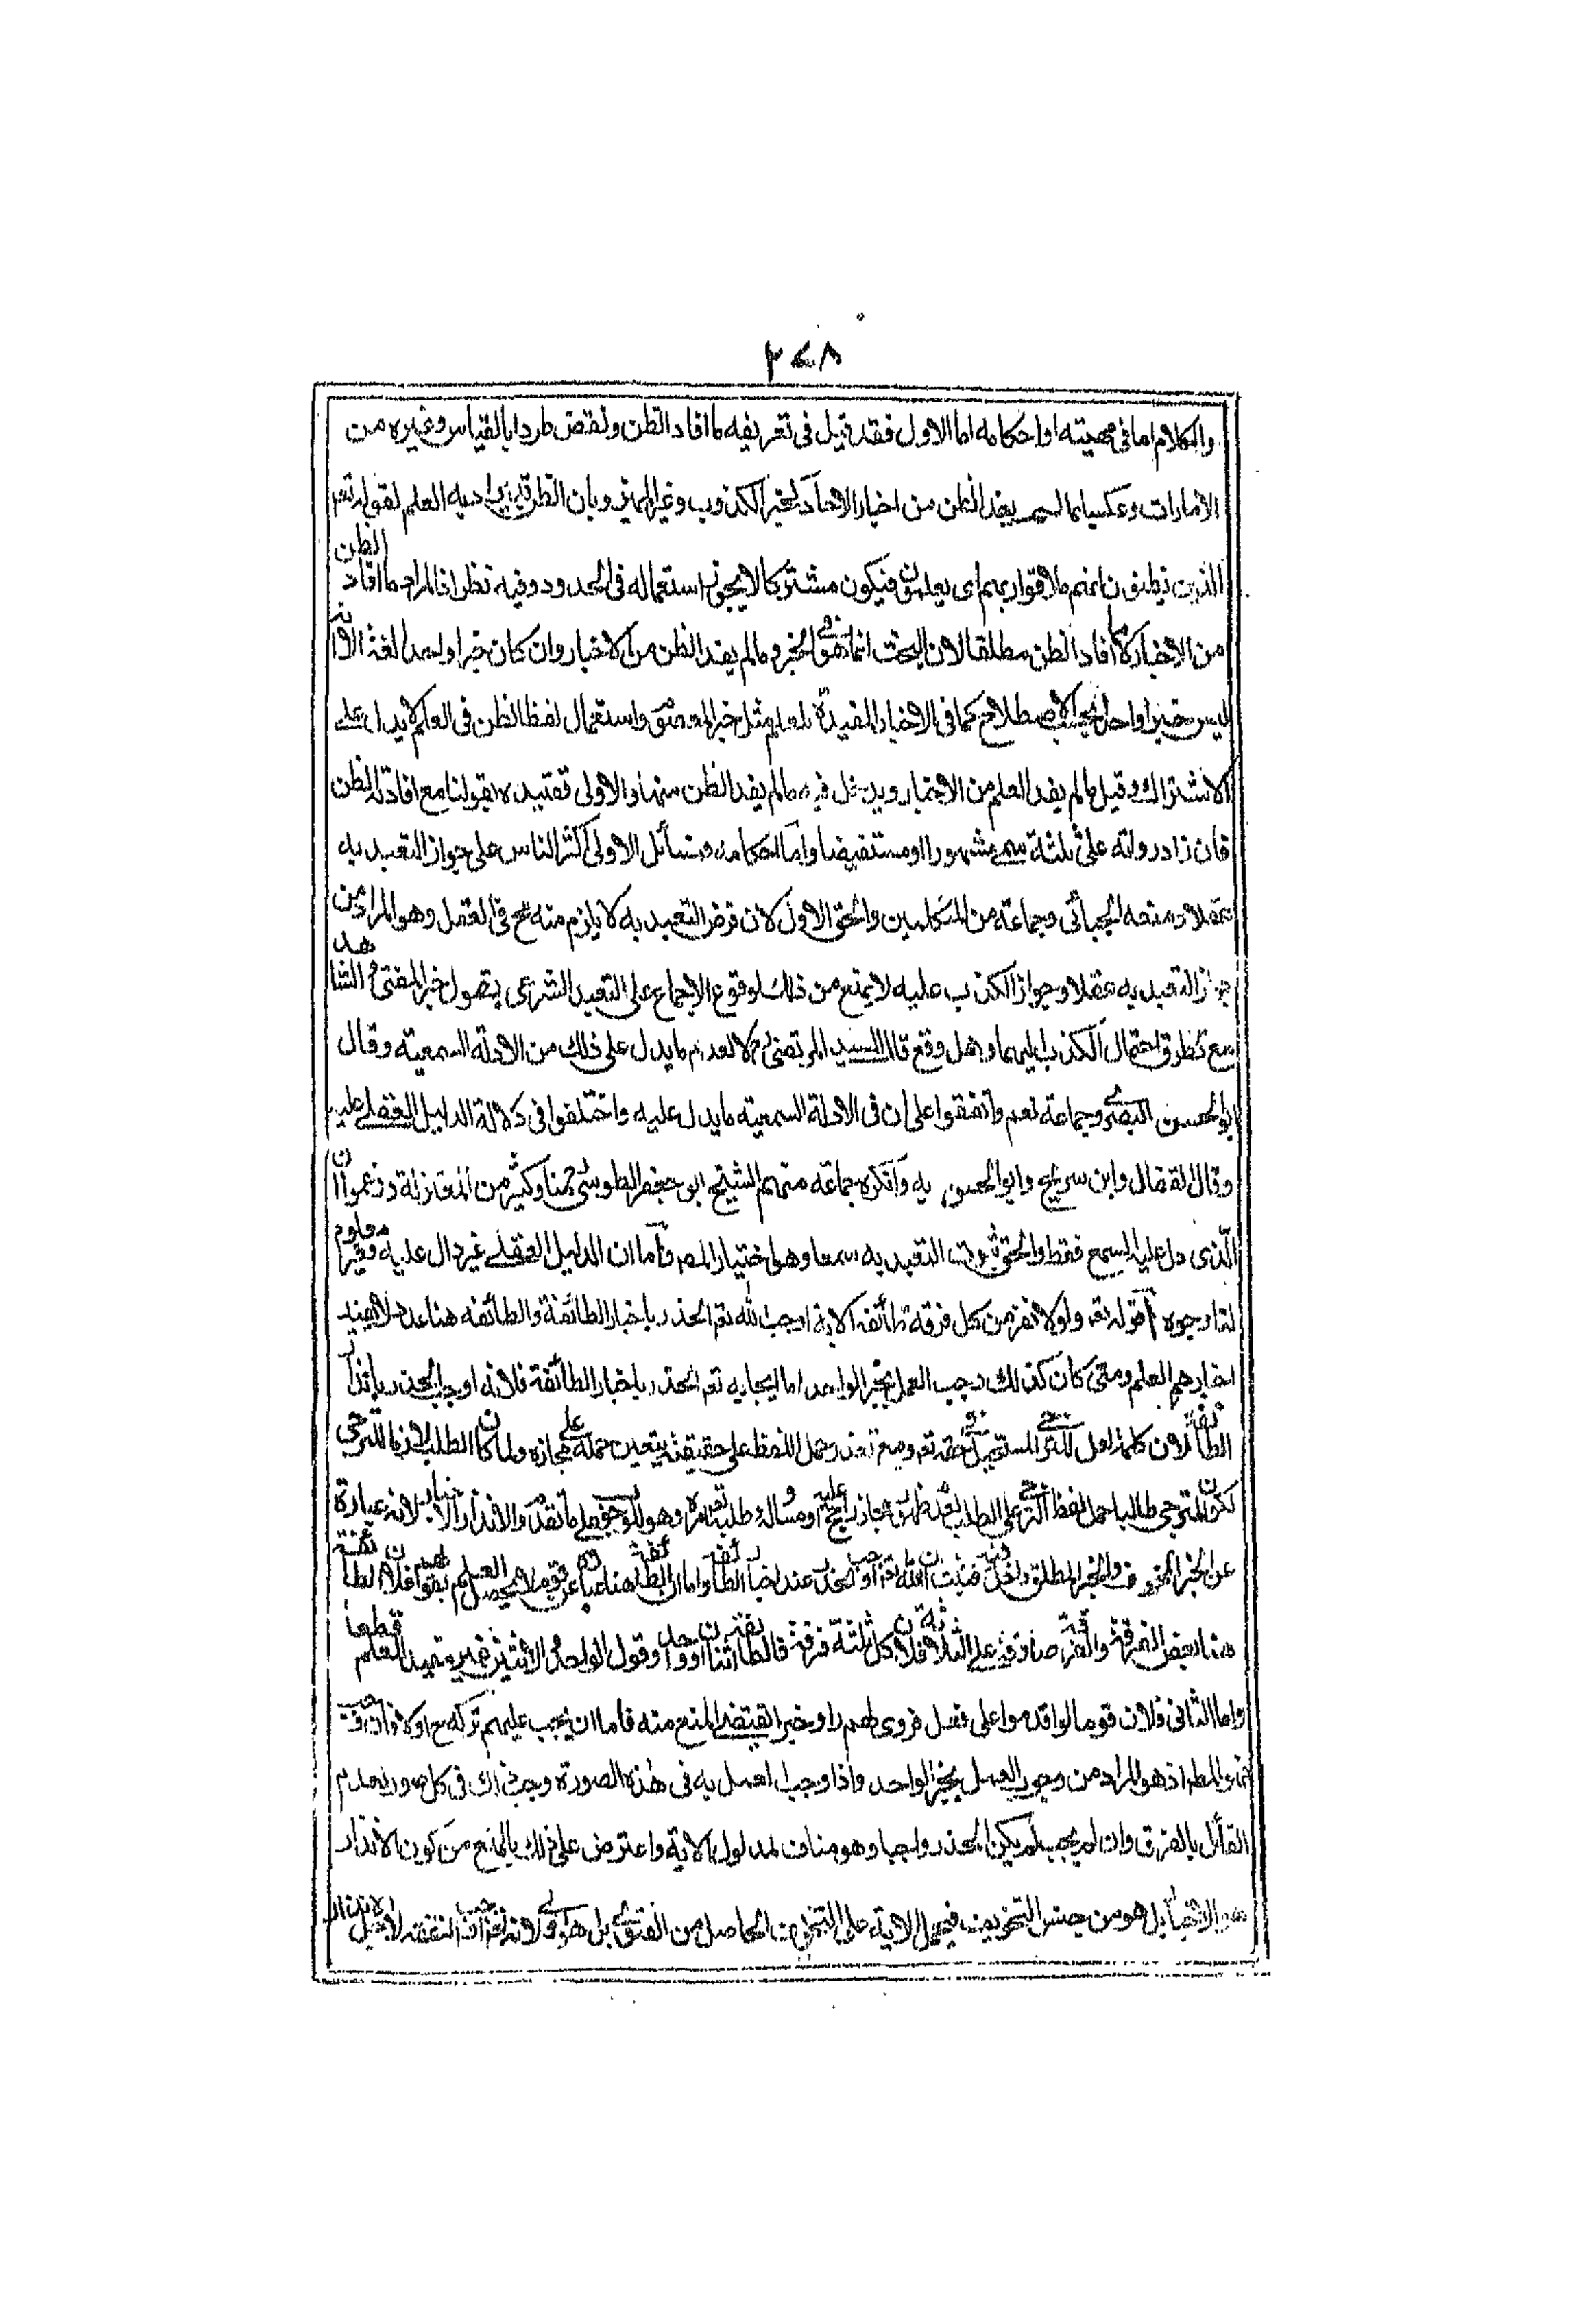 ٢٧٨
والكلام اما في مهيته او احكامه اما الاول فقد قيل في تعريفه ما افاد الظن ونقض طردا بالقياس وغيره من
الامارات وعكسا بما ليس يفيد الظن من اخبار الآحاد كخبر الكذوب وغير المميز وبان الظن قد يراد به العلم لقوله تعم
الذين يظنون انهم ملاقوا ربهم اى يعلمون فيكون مشتركا لا يجوز استعماله في الحدود وفيه نظر اذ المراد ما افاد الظن
من الاخبار كلما افاد الظن مطلقا لان البحث انما هو في الخبر وما لم يفد الظن من الاخبار وان كان خبرا واحدا لغة الا انه
ليس خبرا واحدا بحسب الاصطلاح كما في الاخبار المفيدة للعلم مثل خبر المعصوم واستعمال لفظ الظن في العلم لا يدل على
الاشتراك وقيل ما لم يفد العلم من الاخبار ويدخل فيه ما لم يفد الظن منها والاولى تقييده بقولنا مع افادته الظن
فان زاد رواته على ثلثة سمى مشهورا او مستفيضا واما احكامه فمسائل الاولى اكثر الناس على جواز التعبد به
عقلا ومنعه الجبائى وجماعة من المتكلمين والحق الاول لان فرض التعبد به لا يلزم منه مح في العقل وهو المراد من
جواز التعبد به عقلا وجواز الكذب عليه لا يمنع من ذلك لوقوع الاجماع على التعبد الشرعى بقبول خبر المفتى والشاهد
مع تطرق احتمال الكذب اليهما وهل وقع قال السيد المرتضى ره لا لعدم ما يدل على ذلك من الادلة السمعية وقال
ابو الحسين البصرى وجماعة نعم واتفقوا على ان في الادلة السمعية ما يدل عليه واختلفوا في دلالة الدليل العقلى عليه
وقال القفال وابن سريج وابو الحسين به وانكره جماعة منهم الشيخ ابو جعفر الطوسى منا وكثير من المعتزلة وزعموا ان
الذى دل عليه السمع فقط والحق ثبوت التعبد به سمعا وهو اختيار المص واما ان الدليل العقلى غير دال عليه فغير معلوم
لنا وجوه ا قوله تعم ولولا نفر من كل فرقة طائفة الاية اوجب الله تعم الحذر باخبار الطائفة والطائفة هنا عدد لا يفيد
اخبارهم العلم ومتى كان كذلك وجب العمل بخبر الواحد اما ايجابه تعم الحذر باخبار الطائفة فلانه اوجب الحذر بانذار
الطائفة لان كلمة لعل للترجى المستحيل في حقه تعم ومع تعذر حمل اللفظ على حقيقته يتعين حمله على مجازه ولما كان الطلب لازما للترجى
لكون المترجى طالبا حمل لفظ الترجى على الطلب
عن الخبر المخوف والخبر المطلق داخل فيه فثبت ان الله تعم اوجب الحذر عند اخبار الطائفة واما ان الطائفة هنا عبارة عن قوم لا يحصل العلم بقولهم فلان الطائفة
هنا بعض الفرقة والفرقة صادقة على الثلاثة فلان كل ثلثة فرقة فالطائفة اثنان او واحد وقول الواحد والاثنين غير مفيد للعلم قطعا
واما الثانى فلان قوما لو اقدموا على فعل فروى لهم راو خبرا يقتضى المنع منه فاما ان يجب عليهم تركه مح اولا فان وجب
فهو المط اذ هو المراد من وجوب العمل بخبر الواحد واذا وجب العمل به في هذه الصورة وجب ذلك في كل صورة لعدم
القائل بالفرق وان لم يجب لم يكن الحذر واجبا وهو مناف لمدلول الاية واعترض على ذلك بالمنع من كون الانذار
هو الاخبار بل هو من جنس التخويف فيحمل الاية على التخويف الحاصل من الفتوى بل هو اولى لانه تعم اوجب التفقه لاجل الانذار